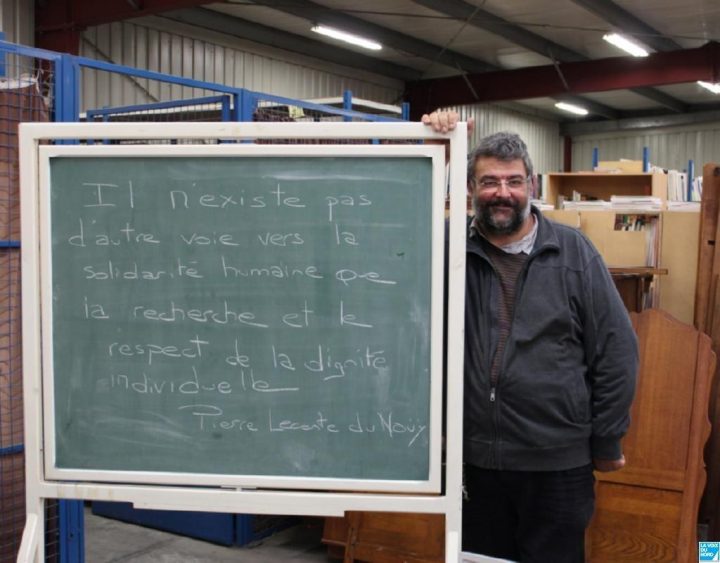 Il n'existe pas
d'autre voie vers la
solidarité humaine que
la recherche et le
respect de la dignité
individuelle
Pierre Lecomte du Noüy
LA VOIX
DU
NORD